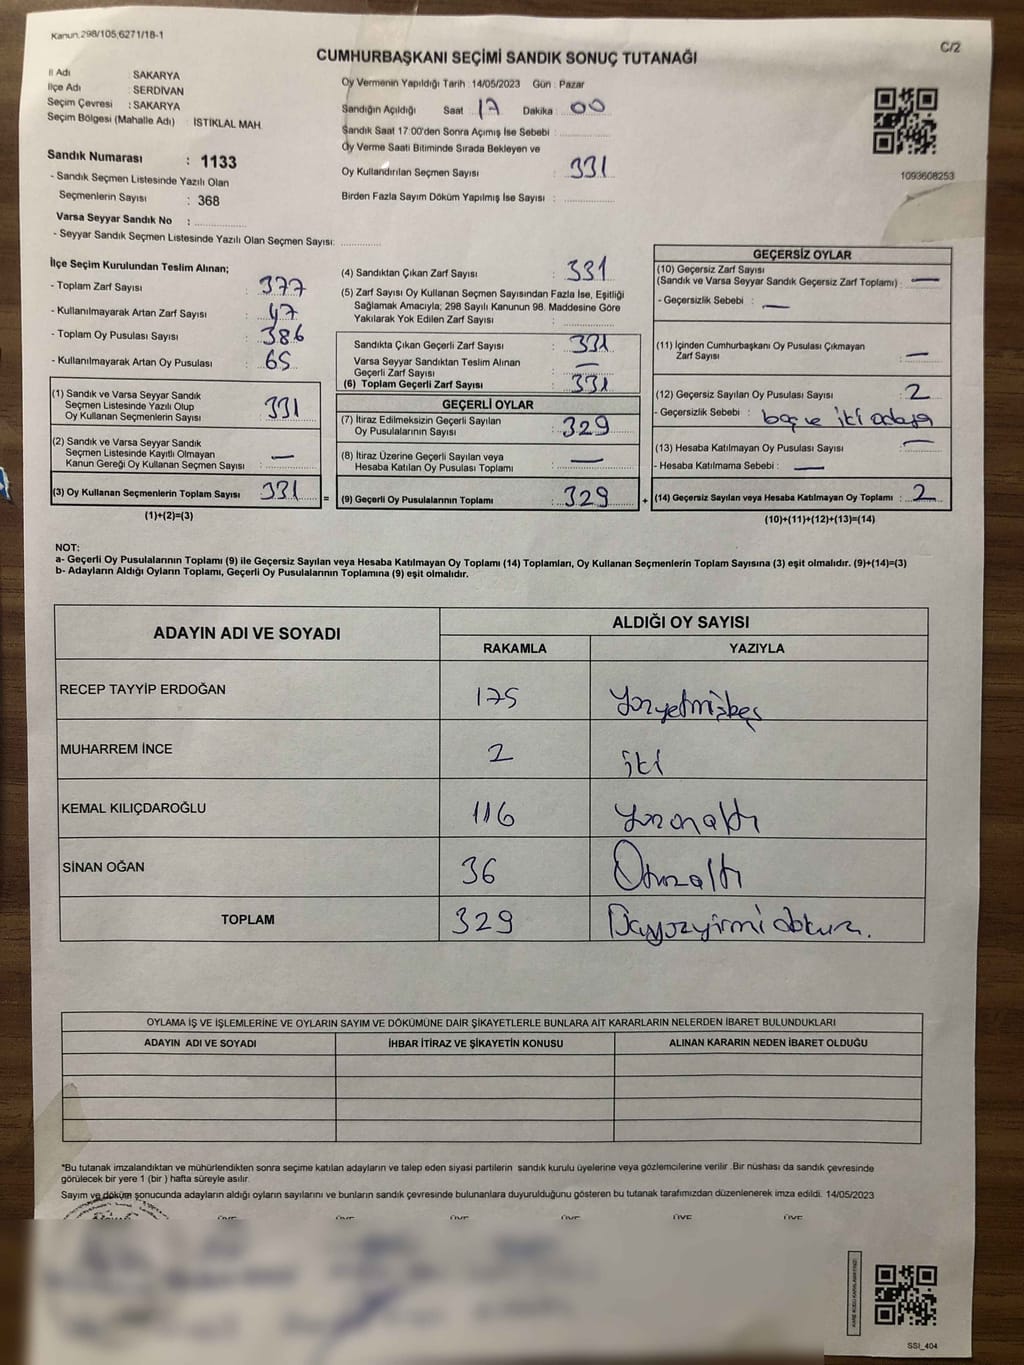 Kanun;298/105;6271/18-1
C/2
CUMHURBAŞKANI SEÇİMİ SANDIK SONUÇ TUTANAĞI
İl Adı : SAKARYA
İlçe Adı : SERDİVAN
Seçim Çevresi : SAKARYA
Seçim Bölgesi (Mahalle Adı) : İSTİKLAL MAH.
Sandık Numarası : 1133
- Sandık Seçmen Listesinde Yazılı Olan
Seçmenlerin Sayısı : 368
Varsa Seyyar Sandık No :
- Seyyar Sandık Seçmen Listesinde Yazılı Olan Seçmen Sayısı:
Oy Vermenin Yapıldığı Tarih : 14/05/2023 Gün : Pazar
Sandığın Açıldığı Saat : 17 Dakika : 00
Sandık Saat 17:00'den Sonra Açımış İse Sebebi :
Oy Verme Saati Bitiminde Sırada Bekleyen ve
Oy Kullandırılan Seçmen Sayısı : 331
Birden Fazla Sayım Döküm Yapılmış İse Sayısı :
1093608253
İlçe Seçim Kurulundan Teslim Alınan;
- Toplam Zarf Sayısı : 377
- Kullanılmayarak Artan Zarf Sayısı : 47
- Toplam Oy Pusulası Sayısı : 386
- Kullanılmayarak Artan Oy Pusulası : 65
(1) Sandık ve Varsa Seyyar Sandık
Seçmen Listesinde Yazılı Olup
Oy Kullanan Seçmenlerin Sayısı : 331
(2) Sandık ve Varsa Seyyar Sandık
Seçmen Listesinde Kayıtlı Olmayan
Kanun Gereği Oy Kullanan Seçmen Sayısı : —
(3) Oy Kullanan Seçmenlerin Toplam Sayısı : 331
(1)+(2)=(3)
=
(4) Sandıktan Çıkan Zarf Sayısı : 331
(5) Zarf Sayısı Oy Kullanan Seçmen Sayısından Fazla İse, Eşitliği
Sağlamak Amacıyla; 298 Sayılı Kanunun 98. Maddesine Göre
Yakılarak Yok Edilen Zarf Sayısı :
Sandıkta Çıkan Geçerli Zarf Sayısı : 331
Varsa Seyyar Sandıktan Teslim Alınan
Geçerli Zarf Sayısı : —
(6) Toplam Geçerli Zarf Sayısı : 331
GEÇERLİ OYLAR
(7) İtiraz Edilmeksizin Geçerli Sayılan
Oy Pusulalarının Sayısı : 329
(8) İtiraz Üzerine Geçerli Sayılan veya
Hesaba Katılan Oy Pusulası Toplamı : —
(9) Geçerli Oy Pusulalarının Toplamı : 329
+
GEÇERSİZ OYLAR
(10) Geçersiz Zarf Sayısı
(Sandık ve Varsa Seyyar Sandık Geçersiz Zarf Toplamı) : —
- Geçersizlik Sebebi : —
(11) İçinden Cumhurbaşkanı Oy Pusulası Çıkmayan
Zarf Sayısı : —
(12) Geçersiz Sayılan Oy Pusulası Sayısı : 2
- Geçersizlik Sebebi : boş ve iki adaya
(13) Hesaba Katılmayan Oy Pusulası Sayısı : —
- Hesaba Katılmama Sebebi : —
(14) Geçersiz Sayılan veya Hesaba Katılmayan Oy Toplamı : 2
(10)+(11)+(12)+(13)=(14)
NOT:
a- Geçerli Oy Pusulalarının Toplamı (9) ile Geçersiz Sayılan veya Hesaba Katılmayan Oy Toplamı (14) Toplamları, Oy Kullanan Seçmenlerin Toplam Sayısına (3) eşit olmalıdır. (9)+(14)=(3)
b- Adayların Aldığı Oyların Toplamı, Geçerli Oy Pusulalarının Toplamına (9) eşit olmalıdır.
ADAYIN ADI VE SOYADI
ALDIĞI OY SAYISI
RAKAMLA YAZIYLA
RECEP TAYYİP ERDOĞAN 175 Yüzyetmişbeş
MUHARREM İNCE 2 iki
KEMAL KILIÇDAROĞLU 116 yüzonaltı
SİNAN OĞAN 36 Otuzaltı
TOPLAM 329 Üçyüzyirmidokuz.
OYLAMA İŞ VE İŞLEMLERİNE VE OYLARIN SAYIM VE DÖKÜMÜNE DAİR ŞİKAYETLERLE BUNLARA AİT KARARLARIN NELERDEN İBARET BULUNDUKLARI
ADAYIN ADI VE SOYADI İHBAR İTİRAZ VE ŞİKAYETİN KONUSU ALINAN KARARIN NEDEN İBARET OLDUĞU
*Bu tutanak imzalandıktan ve mühürlendikten sonra seçime katılan adayların ve talep eden siyasi partilerin sandık kurulu üyelerine veya gözlemcilerine verilir .Bir nüshası da sandık çevresinde
görülecek bir yere 1 (bir ) hafta süreyle asılır.
Sayım ve döküm sonucunda adayların aldığı oyların sayılarını ve bunların sandık çevresinde bulunanlara duyurulduğunu gösteren bu tutanak tarafımızdan düzenlenerek imza edildi. 14/05/2023
ÜYE ÜYE ÜYE ÜYE ÜYE ÜYE
SSI_404